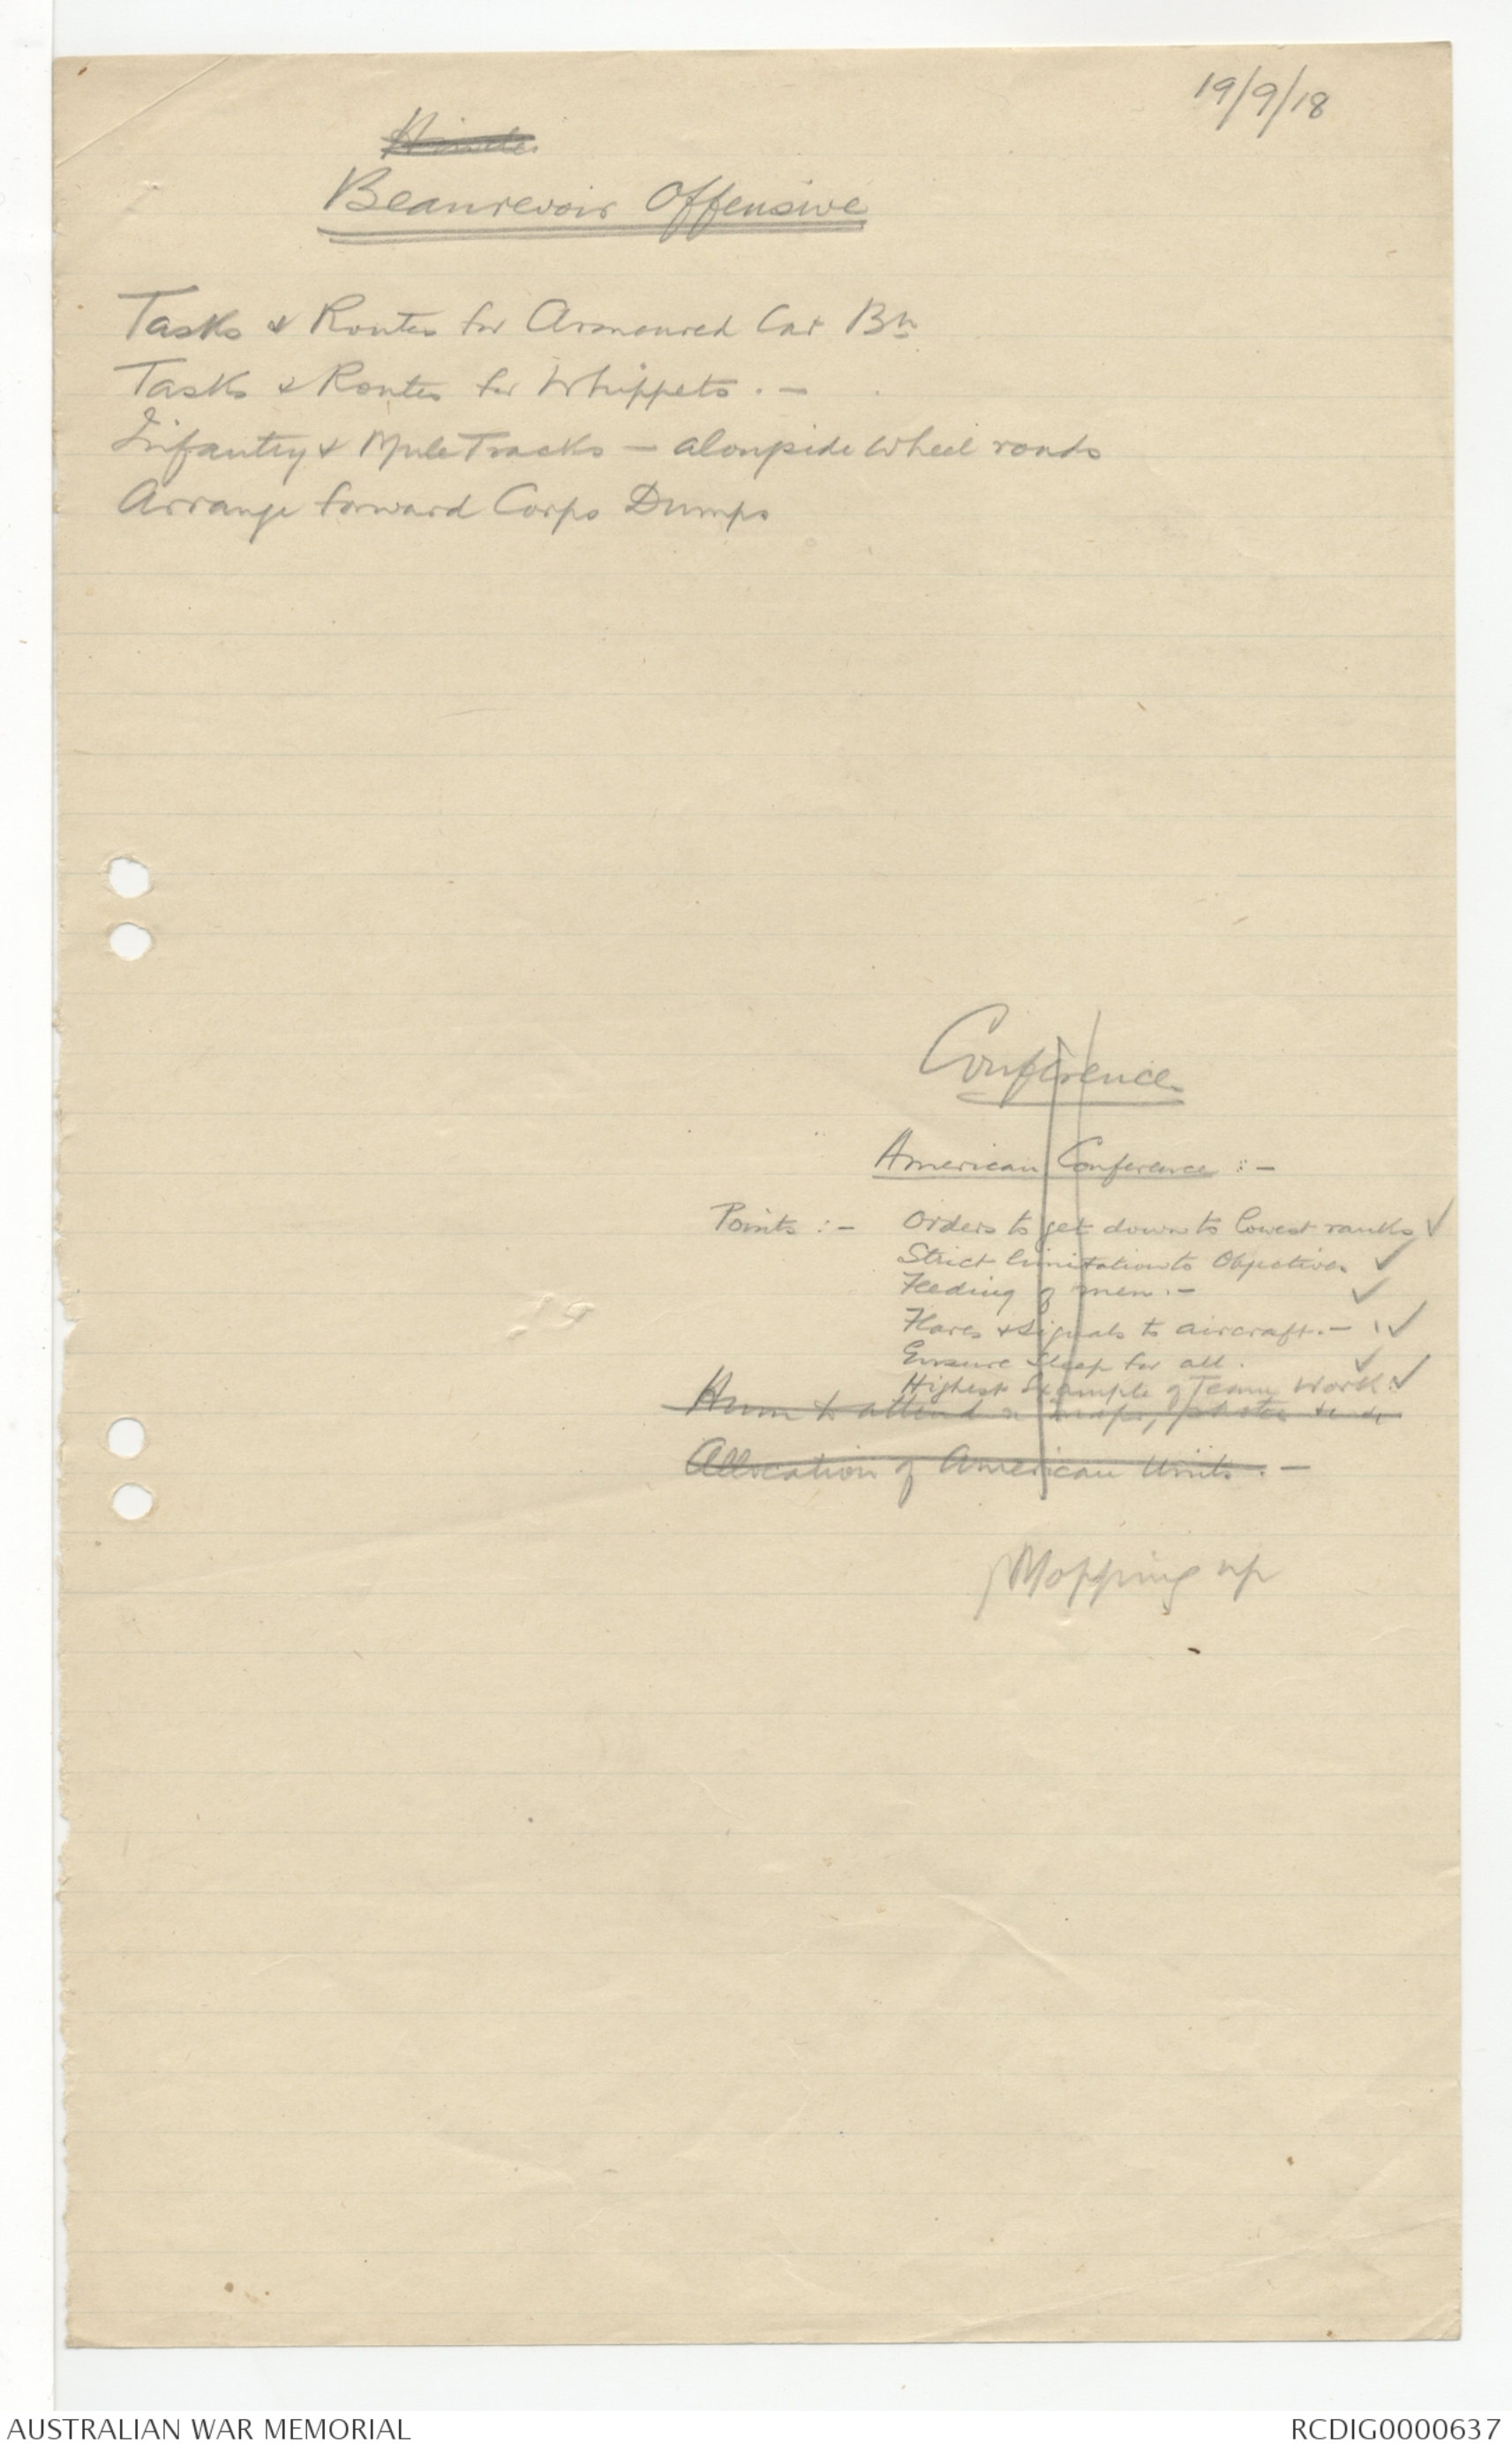 19/9/18
Beaurevoir Offensive
Tasks & Routes for Armoured Car Bn
Tasks & Routes for Whippets. -
Infantry & Mule Tracks - alongside wheel roads
Arrange forward Corps Dumps
Conference
American Conference :-
Points :- Orders to get down to lowest ranks ✓
Strict limitation to Objective. ✓
Feeding of men. - ✓
Flares & signals to aircraft. - ✓
Ensure sleep for all. ✓
Highest Example of Team Work. ✓
to attend maps, photos
Allocation of American Units. -
Mopping up
AUSTRALIAN WAR MEMORIAL
RCDIG0000637